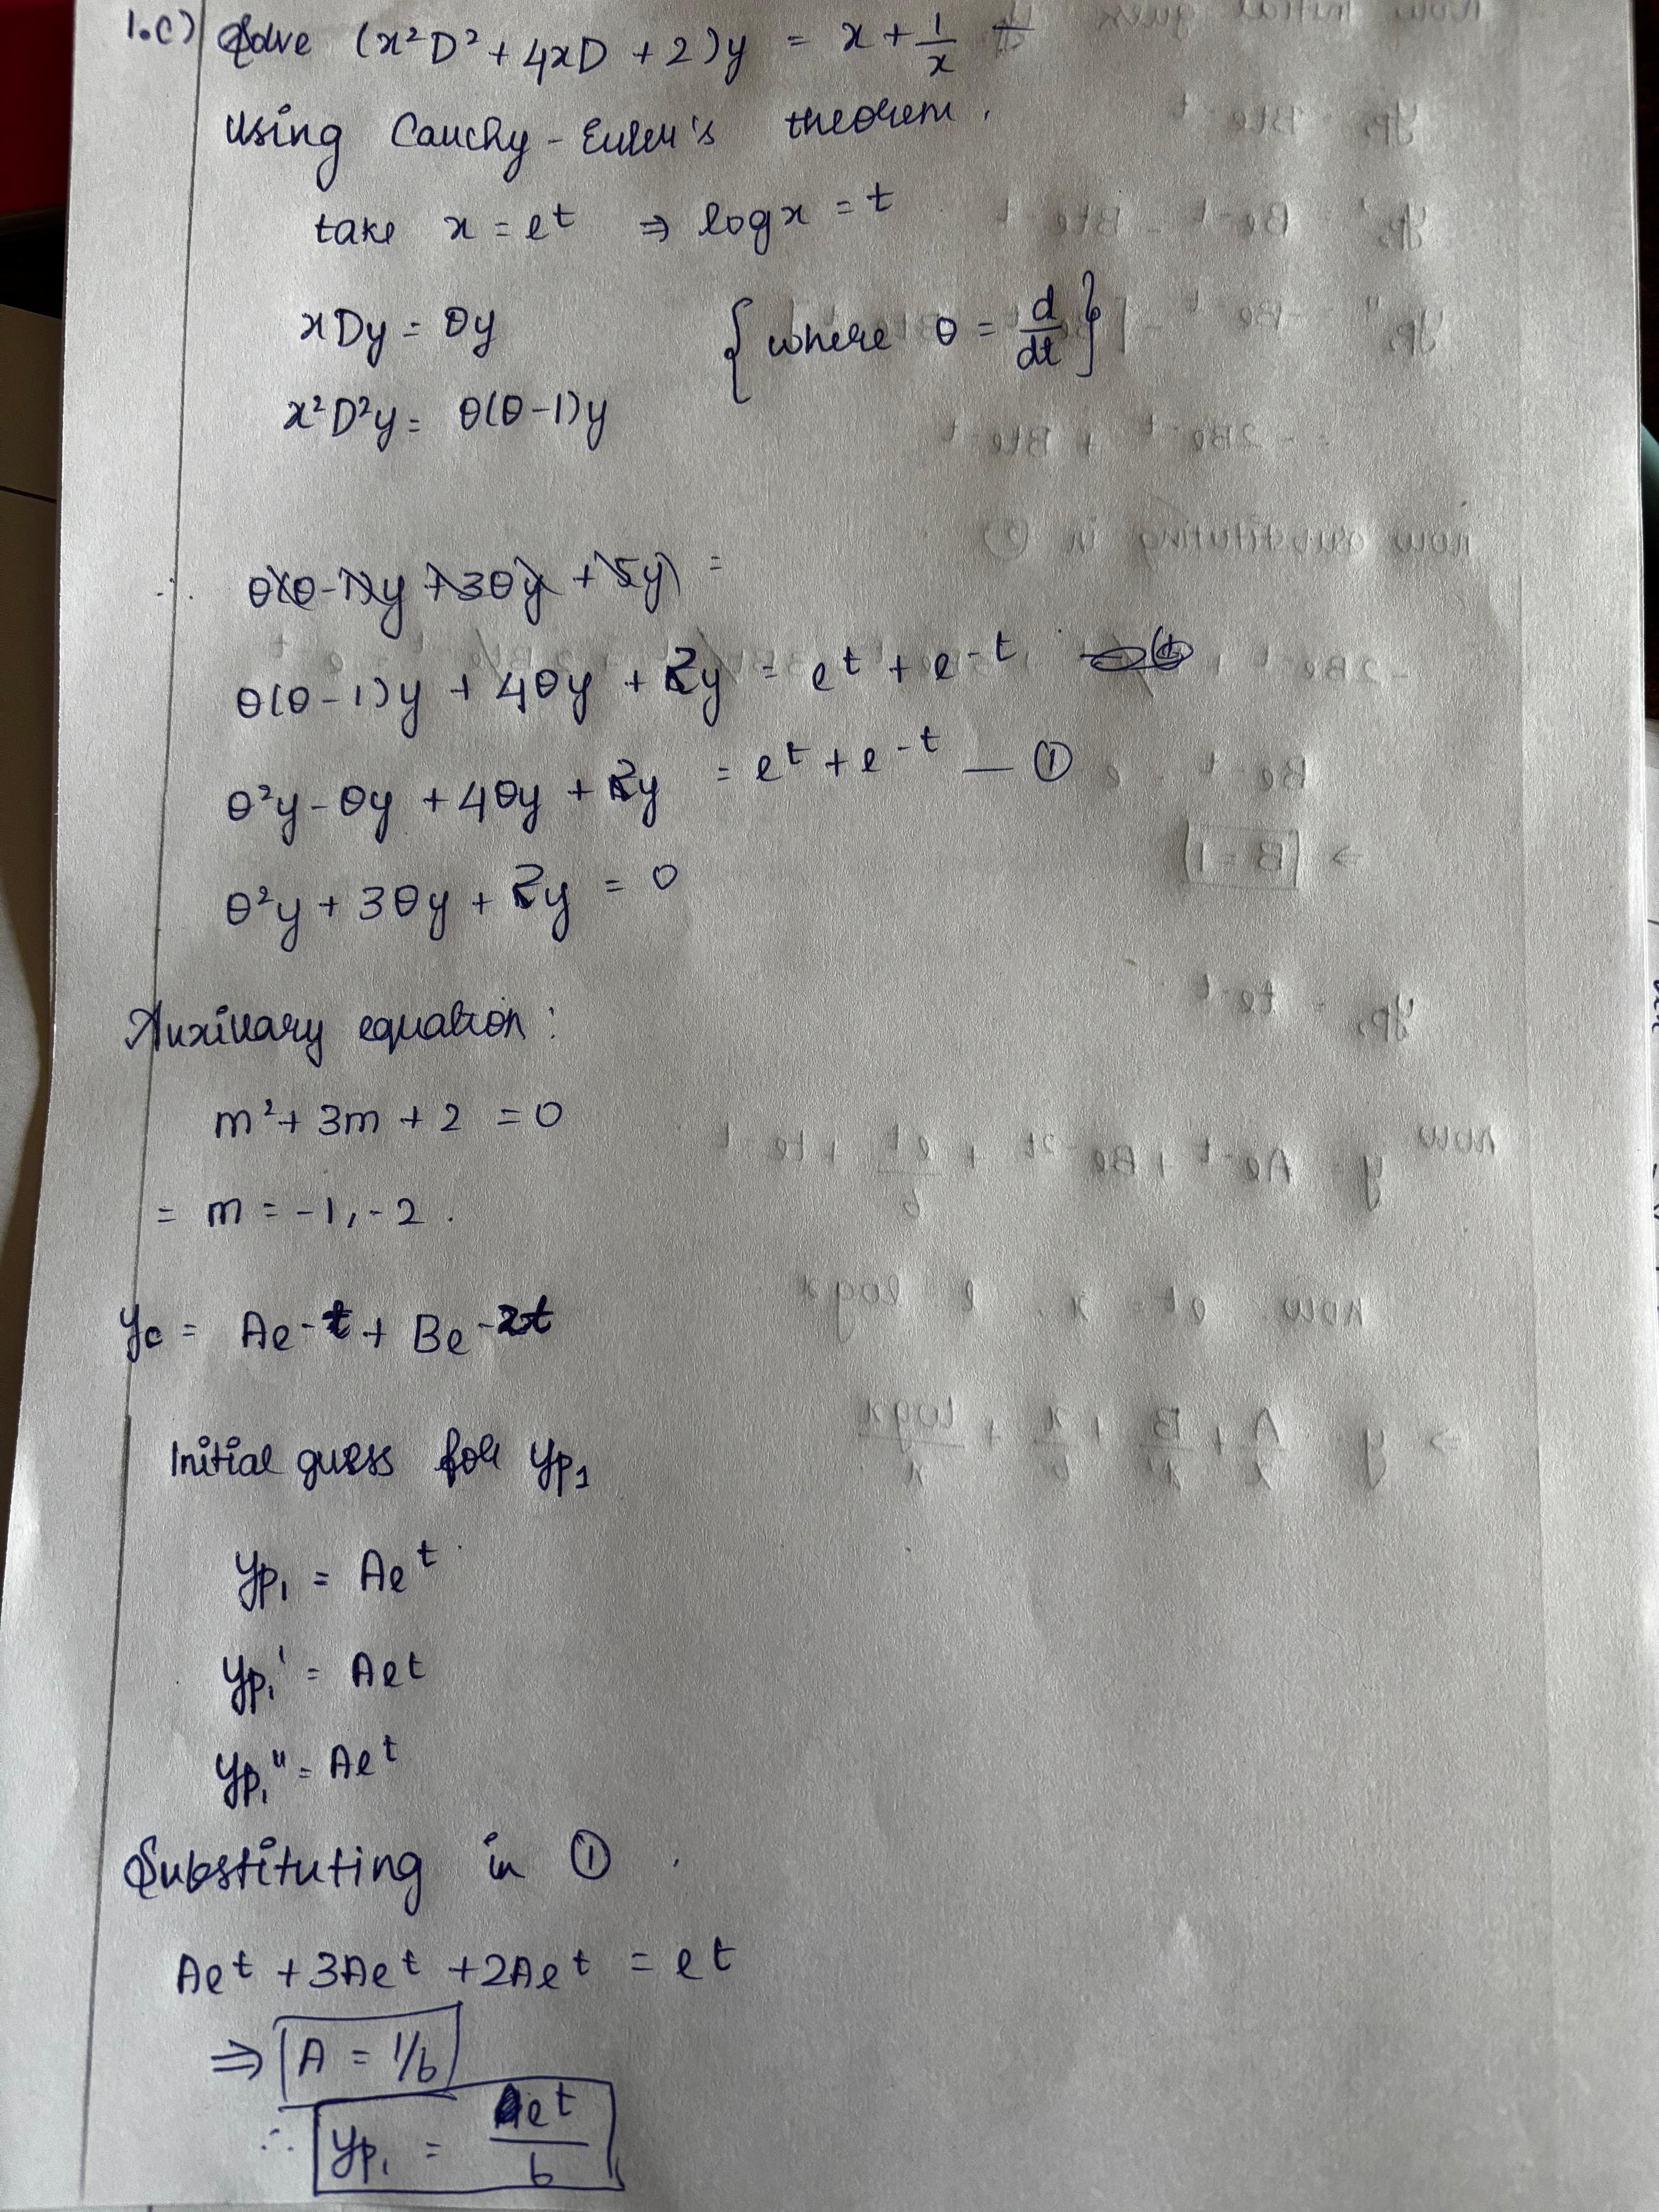 1.c) Solve (x²D² + 4xD + 2)y = x + 1/x
Using Cauchy-Euler's theorem.
take x = e^t ⇒ log x = t
xDy = θy {where θ = d/dt}
x²D²y = θ(θ-1)y
∴ θ(θ-1)y + 3θy + 5y) =
θ(θ-1)y + 4θy + 2y = e^t + e^-t
θ²y - θy + 4θy + 2y = e^t + e^-t — ①
θ²y + 3θy + 2y = 0
Auxilary equation:
m² + 3m + 2 = 0
= m = -1, -2.
yc = Ae^-t + Be^-2t
Initial guess for yp₁
yp₁ = Ae^t
yp₁' = Ae^t
yp₁" = Ae^t
Substituting in ①.
Ae^t + 3Ae^t + 2Ae^t = e^t
⇒ A = 1/6
∴ yp₁ = e^t/6